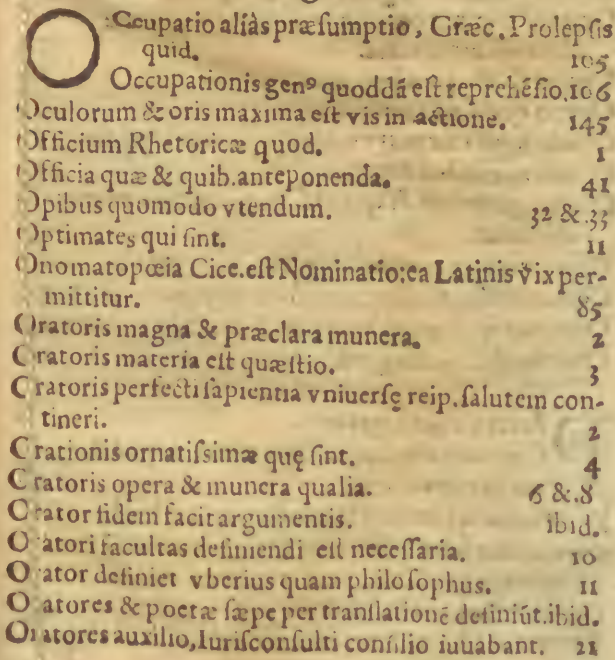 OCcupatio aliàs præsumptio, Græc. Prolepsis
quid. 105
Occupationis genꝰ quoddã est reprehẽsio. 106
Oculorum & oris maxima est vis in actione. 145
Officium Rhetoricæ quod. 1
Officia quæ & quib. anteponenda. 41
Opibus quomodo vtendum. 32 & 33
Optimates qui sint. 11
Onomatopœia Cice. est Nominatio: ea Latinis vix per-
mittitur. 85
Oratoris magna & præclara munera. 2
Oratoris materia est quæstio. 3
Oratoris perfecti sapientia vniuersę reip. salutem con-
tineri. 2
Orationis ornatissimæ quę sint. 4
Oratoris opera & munera qualia. 6 &.8
Orator fidem facit argumentis. ibid.
Oratori facultas definiendi est necessaria. 10
Orator definiet vberius quam philosophus. 11
Oratores & poetæ sæpe per translationẽ definiũt. ibid.
Oratores auxilio, Iurisconsulti consilio iuuabant. 21